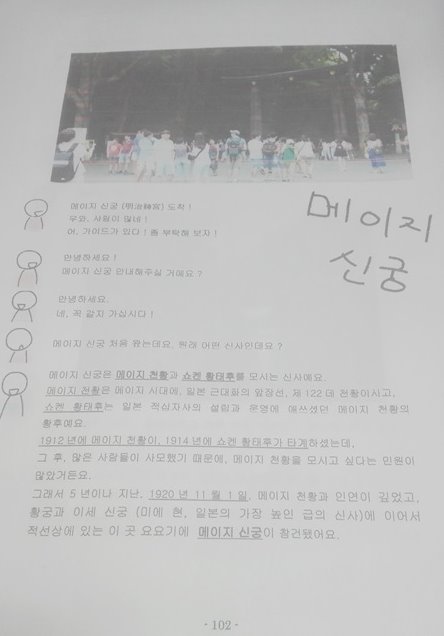 메이지 신궁 (明治神宮) 도착!
우와, 사람이 많네!
어, 가이드가 있다! 좀 부탁해 보자!
메이지
신궁
안녕하세요!
메이지 신궁 안내해주실 거예요?
안녕하세요.
네, 꼭 같지 가십시다!
메이지 신궁 처음 왔는데요. 원래 어떤 신사인데요?
메이지 신궁은 메이지 천황과 쇼켄 황태후를 모시는 신사예요.
메이지 천황은 메이지 시대에, 일본 근대화의 앞장선, 제 122 대 천황이시고,
쇼켄 황태후는 일본 적십자사의 설립과 운영에 애쓰셨던 메이지 천황의
황후예요.
1912 년에 메이지 천황이, 1914 년에 쇼켄 황태후가 타계하셨는데,
그 후, 많은 사람들이 사모했기 때문에, 메이지 천황을 모시고 싶다는 민원이
많았거든요.
그래서 5 년이나 지난, 1920 년 11 월 1 일, 메이지 천황과 인연이 깊었고,
황궁과 이세 신궁 (미에 현, 일본의 가장 높인 급의 신사)에 이어서
적선상에 있는 이 곳 요요기에 메이지 신궁이 창건됐어요.
- 102 -